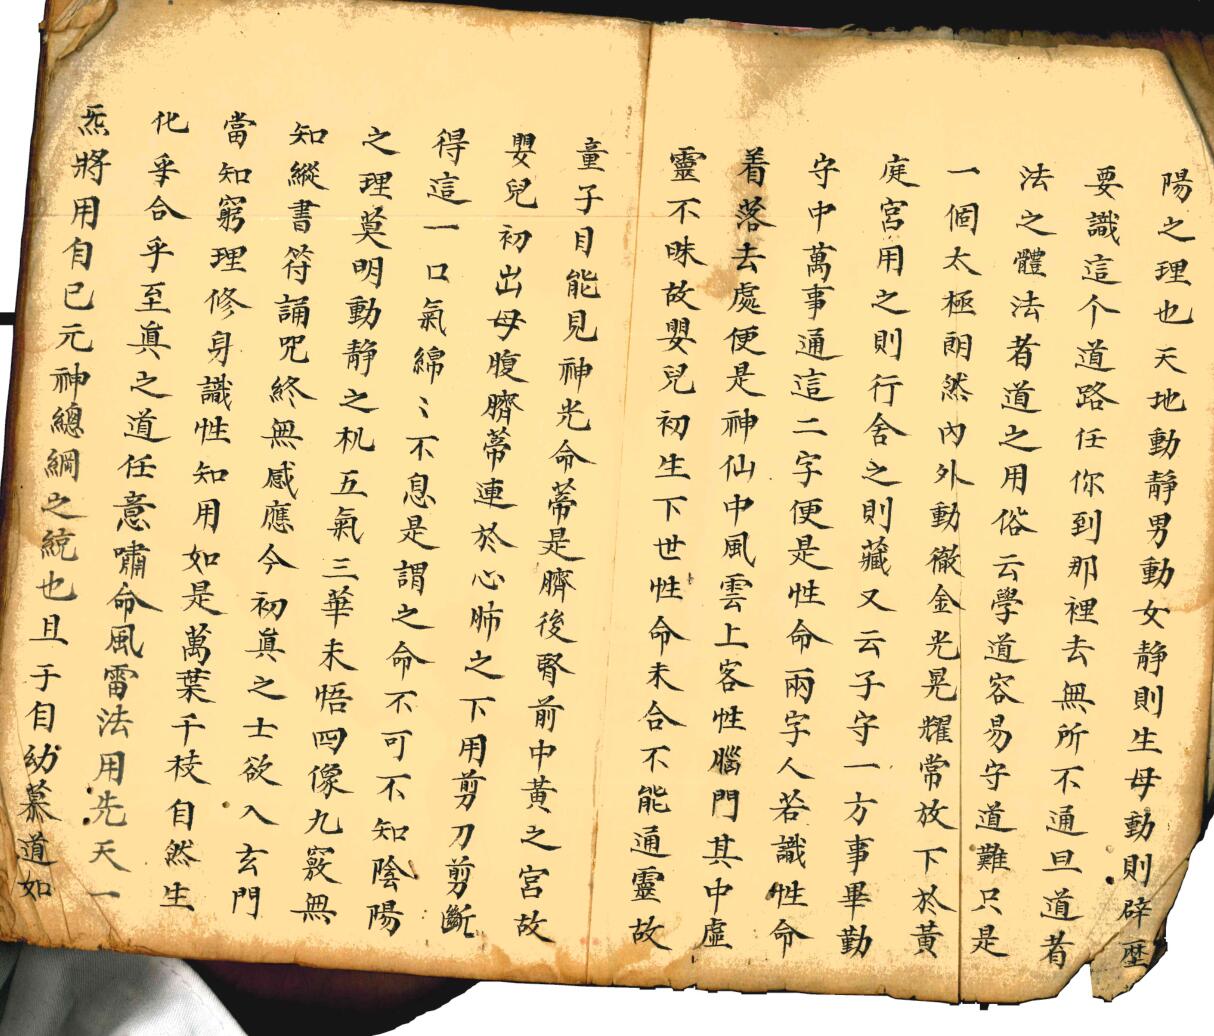 陽之理也天地動靜男動女静則生母動則辟歷
要識這个道路任你到那裡去無所不通旦道者
法之體法者道之用俗云學道容易守道難只是
一個太極朗然內外動徹金光晃耀常放下於黃
庭宮用之則行舍之則藏又云子守一方事畢勤
守中萬事通這二字便是性命兩字人若識性命
着落去處便是神仙中風雲上客性腦門其中虛
靈不昧故嬰兒初生下世性命未合不能通靈故
童子目能見神光命蒂是臍後腎前中黃之宮故
嬰兒初出母腹臍蒂連於心肺之下用剪刀剪斷
得這一口氣綿〻不息是謂之命不可不知陰陽
之理莫明動靜之机五氣三華未悟四像九竅無
知縱書符誦咒終無感應今初眞之士欲入玄門
當知窮理修身識性知用如是萬葉千枝自然生
化乎合乎至眞之道任意嘯命風雷法用先天一
炁將用自已元神總綱之統也且于自幼慕道如